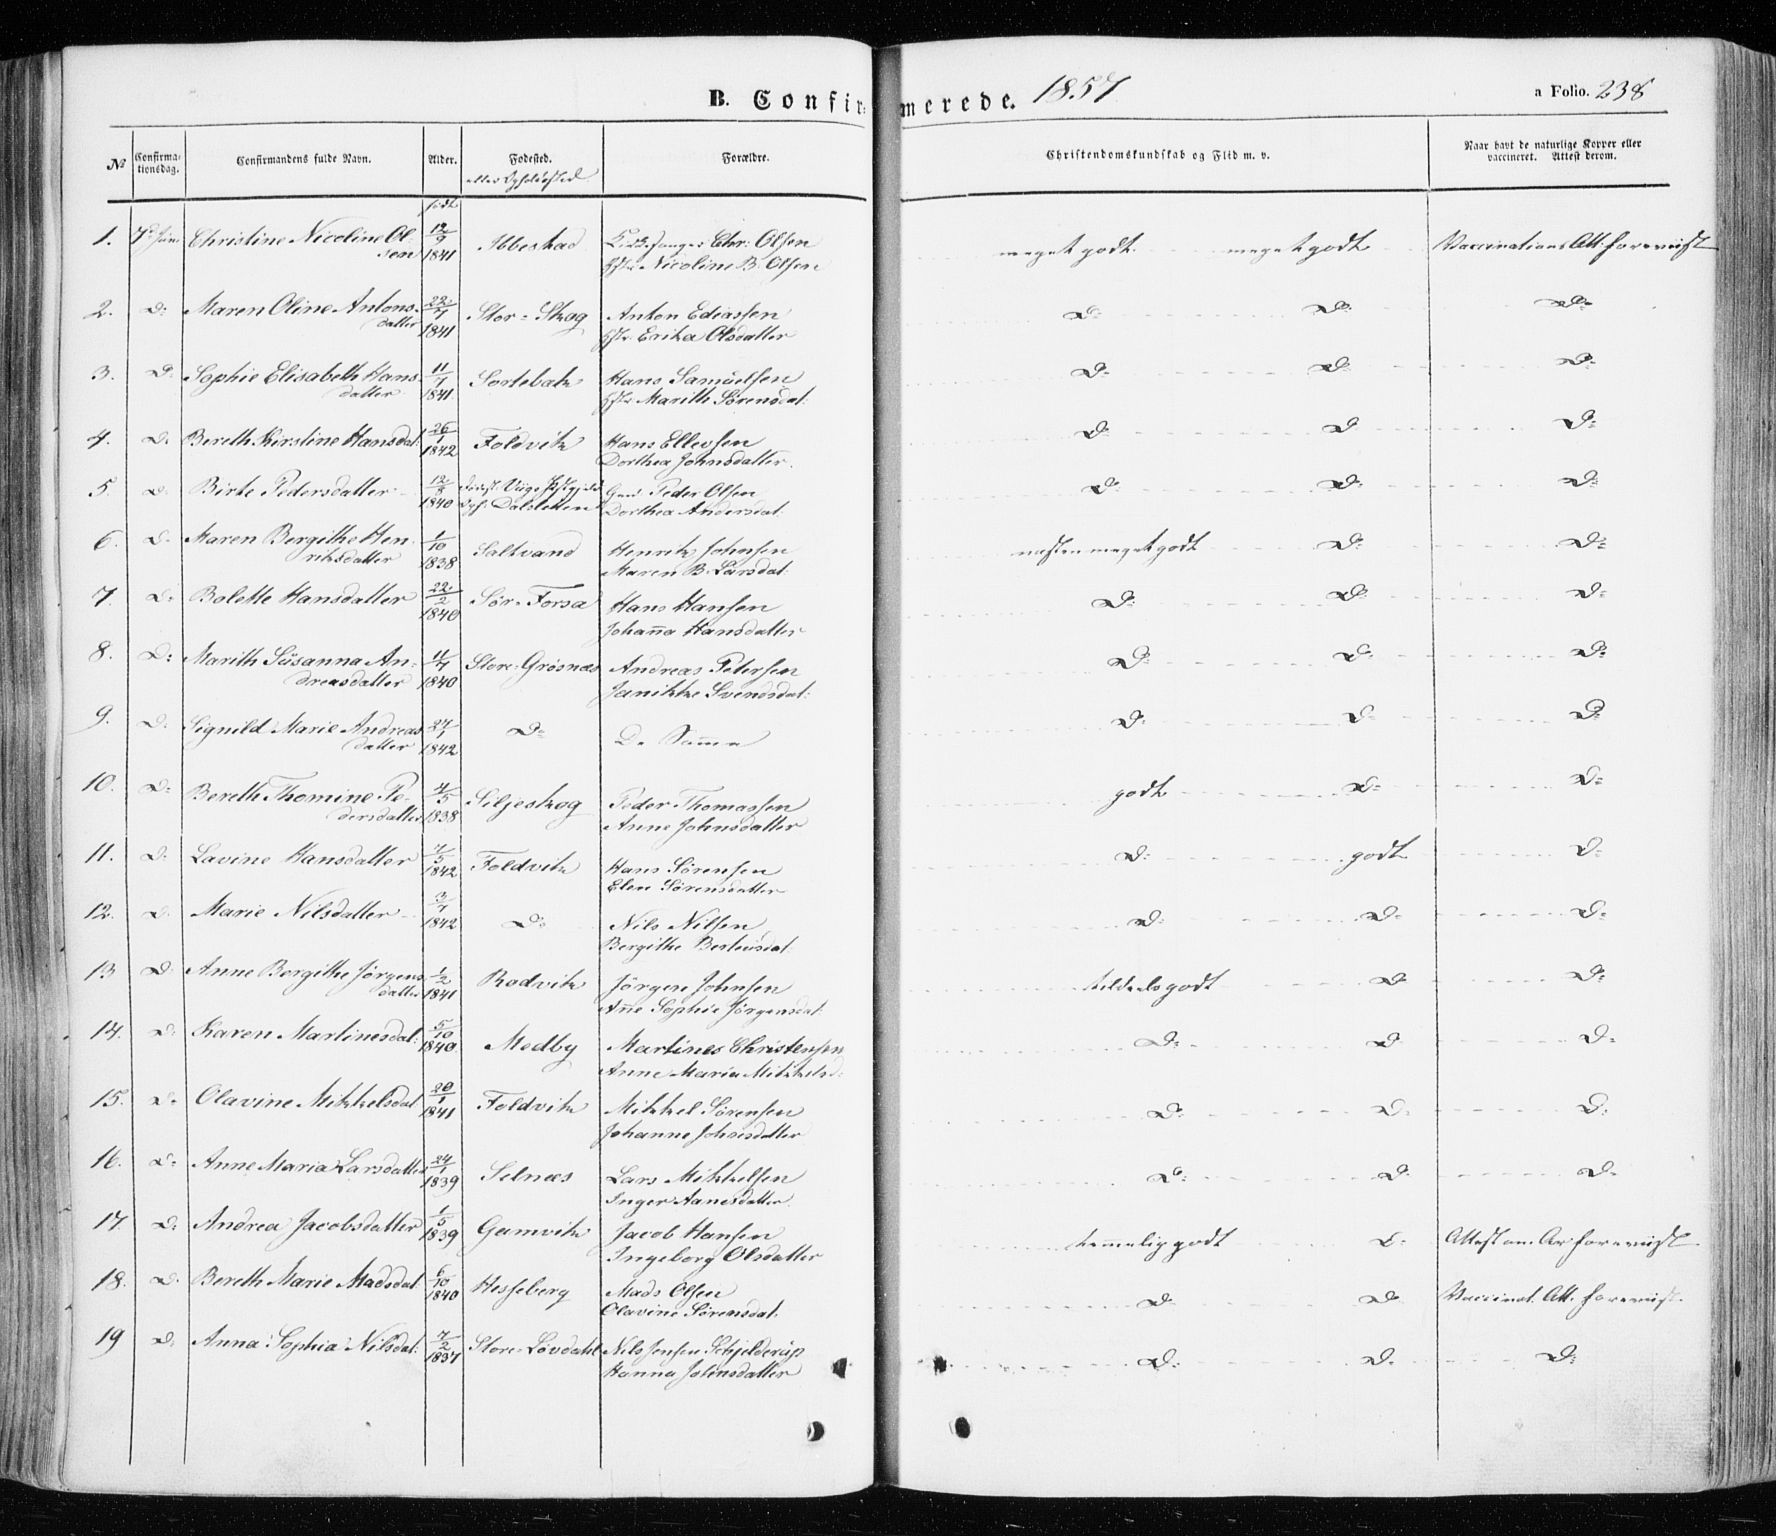 B. Confirmerede. 1857
a Folio. 238
№ Confirmationsdag. Confirmandens fulde Navn. Alder. Fødested. Forældre. Christendomskundskab og Flid m. v. Naar havt de naturlige Kopper eller vaccineret. Attest derom.
eller Opholdssted
født
1. 7d Juni Christine Nicoline Ol- 12/9 Ibbestad Chr: Olsen meget godt meget godt Vaccinations Att: foreviist
sen 1841 Hstr Nicoline B. Olsen
2. D: Maren Oline Antons- 22/7 Stor-Skog Anton Ediassen D: D: D:
datter 1841 Hstr: Erika Olsdatter
3. D: Sophie Elisabeth Hans- 11/7 Sortebak Hans Samuelsen D: D: D:
datter 1841 Hstr Marith Sörensdat:
4. D: Bereth Kirstine Hansdat: 26/1 Foldvik Hans Ellevsen D: D D:
1842 Dorthea Johnsdatter.
5. D: Birte Pedersdatter 12/8 Peder Olsen D: D: D:
1840 Oph: Dalsletten Dorthea Andersdat:
6. D: Maren Bergithe Hen- 1/10 Saltvand Henrik Johnsen næsten meget godt D: D:
riksdatter 1838 Maren B. Larsdat:
7. D: Bolette Hansdatter 22/2 Sör-Forsa Hans Hansen D: D: D:
1840 Johanna Hansdatter
8. D: Marith Susanna An- 11/7 Store-Grösnæs Andreas Petersen D: D: D:
dreasdatter 1840 Janikke Svendsdat:
9. D: Signild Marie Andreas 27/1 D: De Samme D: D: D:
datter 1842
10. D: Bereth Thomine Pe- 4/5 Siljeskog Peder Thomassen godt D: D:
dersdatter 1838 Anne Johnsdatter
11. D: Lavine Hansdatter 4/5 Foldvik Hans Sörensen D: godt D:
1842 Elen Sörensdatter
12. D. Marie Nilsdatter 3/7 D: Nils Nilsen D: D: D:
1842 Bergithe Bertheusdat:
13 D: Anne Bergithe Jörgens 1/2 Rodvik Jörgen Johnsen tildeels godt D D:
datter 1841 Anne Sophie Jörgensdat:
14. D: Karen Martinesdat: 5/10 Medby Martines Christensen D: D D:
1840 Anne Maria Mikkelsd:
15. D: Olavine Mikkelsdat 20/1 Foldvik Mikkel Sörensen D: D: D:
1841 Johanne Johnsdatter
16. D: Anne Maria Larsdatter 24/1 Selnæs Lars Mikkelsen D: D: D:
1839 Inger Aanesdatter
17. D: Andrea Jacobsdatter 1/5 Gamvik Jacob Hansen temmelig godt D: Attest om Ar foreviist
1839 Ingeborg Olsdatter
18. D. Bereth Marie Madsdat 6/10 Hesseberg Mads Olsen D: D: Vaccinat. Att. foreviist.
1840 Olavine Sörensdat.
19 D: Anna Sophia Nilsdat: 7/2 Store-Lövdahl Nils Jensen Schjelderup D: D: D:
1837 Hanna Johnsdatter